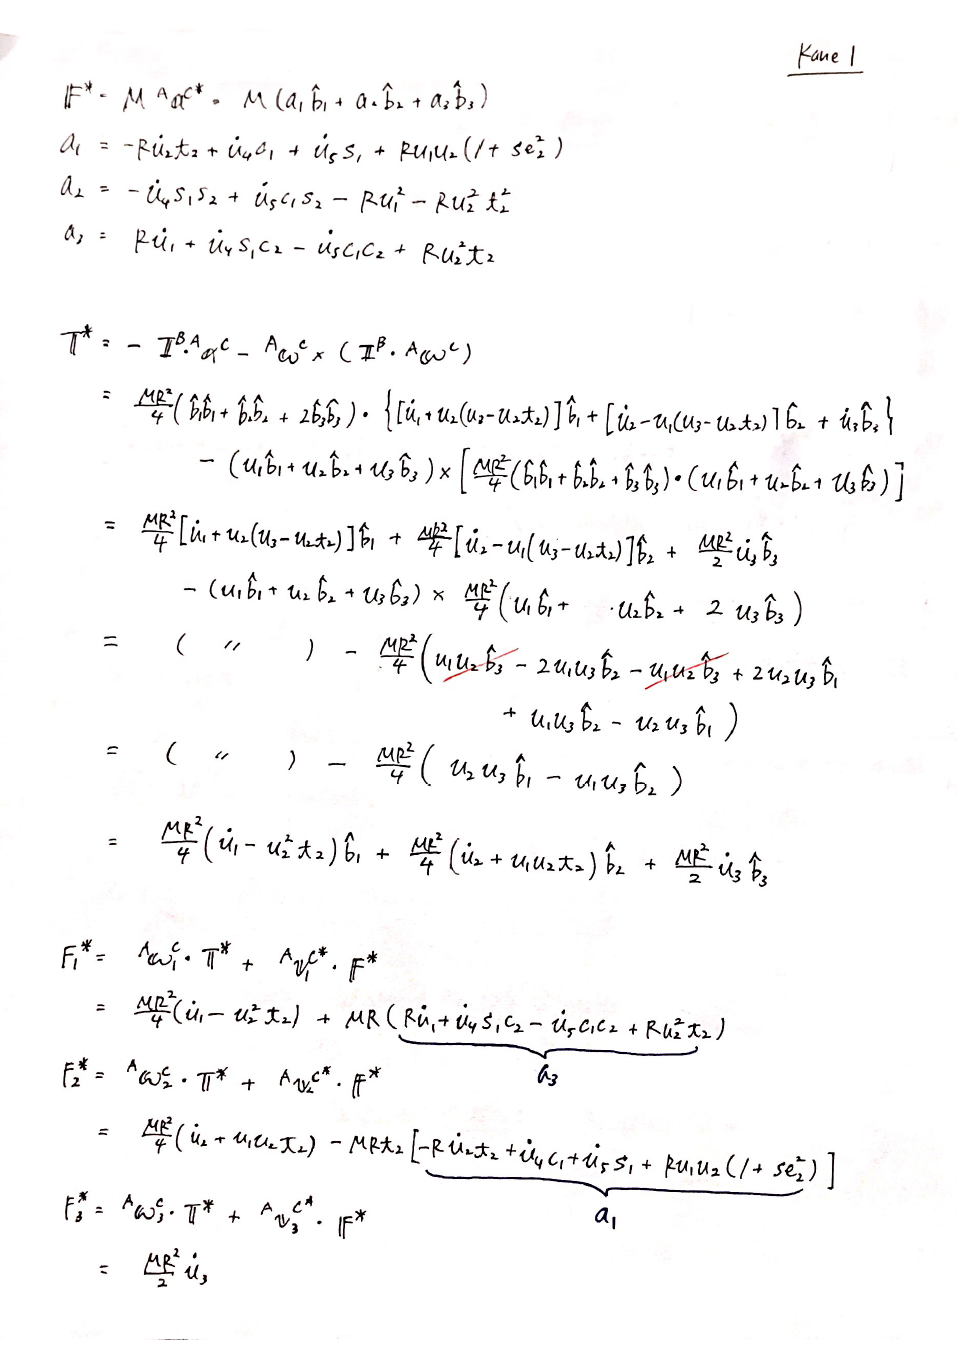 Kane 1
𝔽* = M ᴬα^C* = M (a₁ b̂₁ + a₂ b̂₂ + a₃ b̂₃)
a₁ = -Ru̇₂t₂ + u̇₄c₁ + u̇₅s₁ + Ru₁u₂(1 + se₂²)
a₂ = -u̇₄s₁s₂ + u̇₅c₁s₂ - Ru₁² - Ru₂² t₂²
a₃ = Ru̇₁ + u̇₄s₁c₂ - u̇₅c₁c₂ + Ru₂²t₂
𝕋* = - 𝕀ᴮ·ᴬα^C - ᴬω^C × (𝕀ᴮ · ᴬω^C)
= MR²/4 (b̂₁b̂₁ + b̂₂b̂₂ + 2b̂₃b̂₃) · {[u̇₁ + u₂(u₃-u₂t₂)] b̂₁ + [u̇₂-u₁(u₃-u₂t₂)] b̂₂ + u̇₃b̂₃}
- (u₁b̂₁ + u₂b̂₂ + u₃b̂₃) × [MR²/4 (b̂₁b̂₁ + b̂₂b̂₂ + b̂₃b̂₃) · (u₁b̂₁ + u₂b̂₂ + u₃b̂₃)]
= MR²/4 [u̇₁ + u₂(u₃-u₂t₂)] b̂₁ + MR²/4 [u̇₂-u₁(u₃-u₂t₂)] b̂₂ + MR²/2 u̇₃b̂₃
- (u₁b̂₁ + u₂b̂₂ + u₃b̂₃) × MR²/4 (u₁b̂₁ + u₂b̂₂ + 2 u₃b̂₃)
= ( 〃 ) - MR²/4 (u₁u₂b̂₃ - 2u₁u₃b̂₂ - u₁u₂b̂₃ + 2u₂u₃b̂₁
+ u₁u₃b̂₂ - u₂u₃b̂₁)
= ( 〃 ) - MR²/4 (u₂u₃b̂₁ - u₁u₃b̂₂)
= MR²/4 (u̇₁ - u₂²t₂) b̂₁ + MR²/4 (u̇₂ + u₁u₂t₂) b̂₂ + MR²/2 u̇₃ b̂₃
F₁* = ᴬω₁^C · 𝕋* + ᴬv₁^C* · 𝔽*
= MR²/4 (u̇₁ - u₂²t₂) + MR (Ru̇₁ + u̇₄s₁c₂ - u̇₅c₁c₂ + Ru₂²t₂)
a₃
F₂* = ᴬω₂^C · 𝕋* + ᴬv₂^C* · 𝔽*
= MR²/4 (u̇₂ + u₁u₂t₂) - MRt₂ [-Ru̇₂t₂ + u̇₄c₁ + u̇₅s₁ + Ru₁u₂(1 + se₂²)]
a₁
F₃* = ᴬω₃^C · 𝕋* + ᴬv₃^C* · 𝔽*
= MR²/2 u̇₃